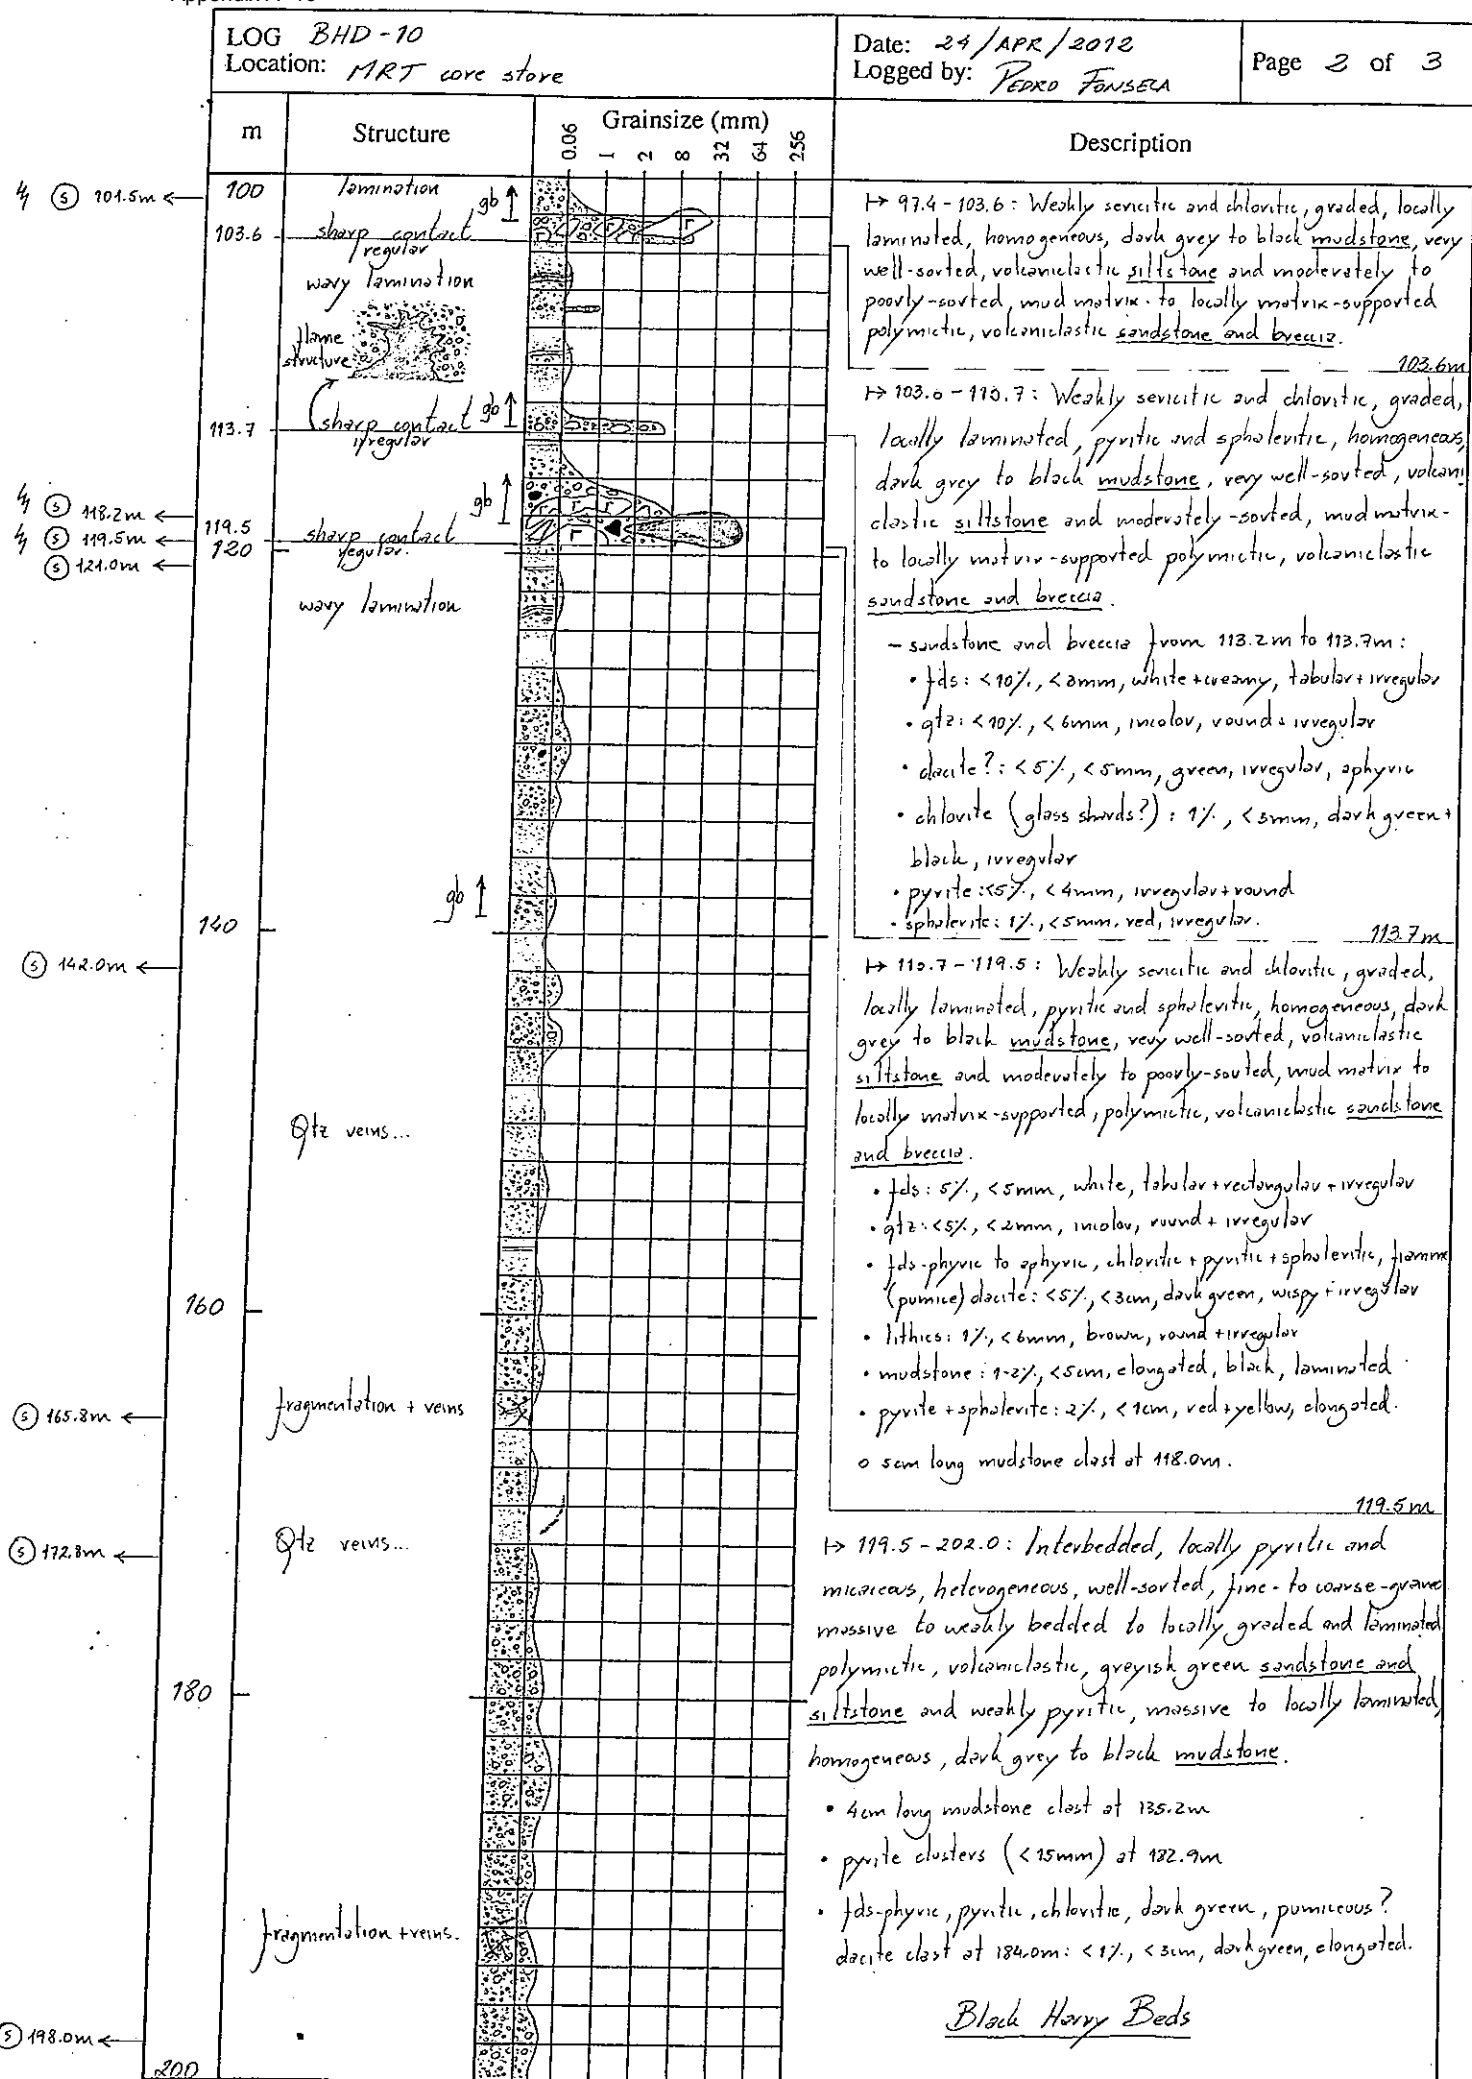 LOG BHD-10
Location: MRT core store
Date: 24/APR/2012
Logged by: PEDRO FONSECA
Page 2 of 3
m
Structure
Grainsize (mm)
0.06 1 2 8 32 64 256
Description
ϟ Ⓢ 101.5m ←
100
lamination
gb ↑
103.6
sharp contact
regular
wavy lamination
flame
structure
gb ↑
113.7
sharp contact
irregular
gb ↑
ϟ Ⓢ 118.2m ←
ϟ Ⓢ 119.5m ←
Ⓢ 121.0m ←
119.5
120
sharp contact
regular.
wavy lamination
gb ↑
140
Ⓢ 142.0m ←
Qtz veins...
160
Ⓢ 165.8m ←
fragmentation + veins
Ⓢ 172.8m ←
Qtz veins...
180
fragmentation + veins.
Ⓢ 198.0m ←
200
↦ 97.4 - 103.6: Weakly sericitic and chloritic, graded, locally
laminated, homogeneous, dark grey to black mudstone, very
well-sorted, volcaniclastic siltstone and moderately to
poorly-sorted, mud matrix- to locally matrix-supported
polymictic, volcaniclastic sandstone and breccia.
103.6m
↦ 103.6 - 113.7: Weakly sericitic and chloritic, graded,
locally laminated, pyritic and sphaleritic, homogeneous,
dark grey to black mudstone, very well-sorted, volcani
clastic siltstone and moderately-sorted, mud matrix-
to locally matrix-supported polymictic, volcaniclastic
sandstone and breccia.
- sandstone and breccia from 113.2m to 113.7m:
• fds: <10%, <3mm, white + creamy, tabular + irregular
• qtz: <10%, <6mm, incolor, round + irregular
• dacite?: <5%, <5mm, green, irregular, aphyric
• chlorite (glass shards?): 1%, <3mm, dark green +
black, irregular
• pyrite: <5%, <4mm, irregular + round
• sphalerite: 1%, <5mm, red, irregular.
113.7m
↦ 113.7 - 119.5: Weakly sericitic and chloritic, graded,
locally laminated, pyritic and sphaleritic, homogeneous, dark
grey to black mudstone, very well-sorted, volcaniclastic
siltstone and moderately to poorly-sorted, mud matrix to
locally matrix-supported, polymictic, volcaniclastic sandstone
and breccia.
• fds: 5%, <5mm, white, tabular + rectangular + irregular
• qtz: <5%, <2mm, incolor, round + irregular
• fds-phyric to aphyric, chloritic + pyritic + sphaleritic, fiamme
(pumice) dacite: <5%, <3cm, dark green, wispy + irregular
• lithics: 1%, <6mm, brown, round + irregular
• mudstone: 1-2%, <5cm, elongated, black, laminated
• pyrite + sphalerite: 2%, <1cm, red + yellow, elongated.
o 5cm long mudstone clast at 118.0m.
119.5m
↦ 119.5 - 202.0: Interbedded, locally pyritic and
micaceous, heterogeneous, well-sorted, fine- to coarse-graine
massive to weakly bedded to locally graded and laminated
polymictic, volcaniclastic, greyish green sandstone and
siltstone and weakly pyritic, massive to locally laminated,
homogeneous, dark grey to black mudstone.
• 4cm long mudstone clast at 135.2m
• pyrite clusters (<15mm) at 182.9m
• fds-phyric, pyritic, chloritic, dark green, pumiceous?
dacite clast at 184.0m: <1%, <3cm, dark green, elongated.
Black Harry Beds